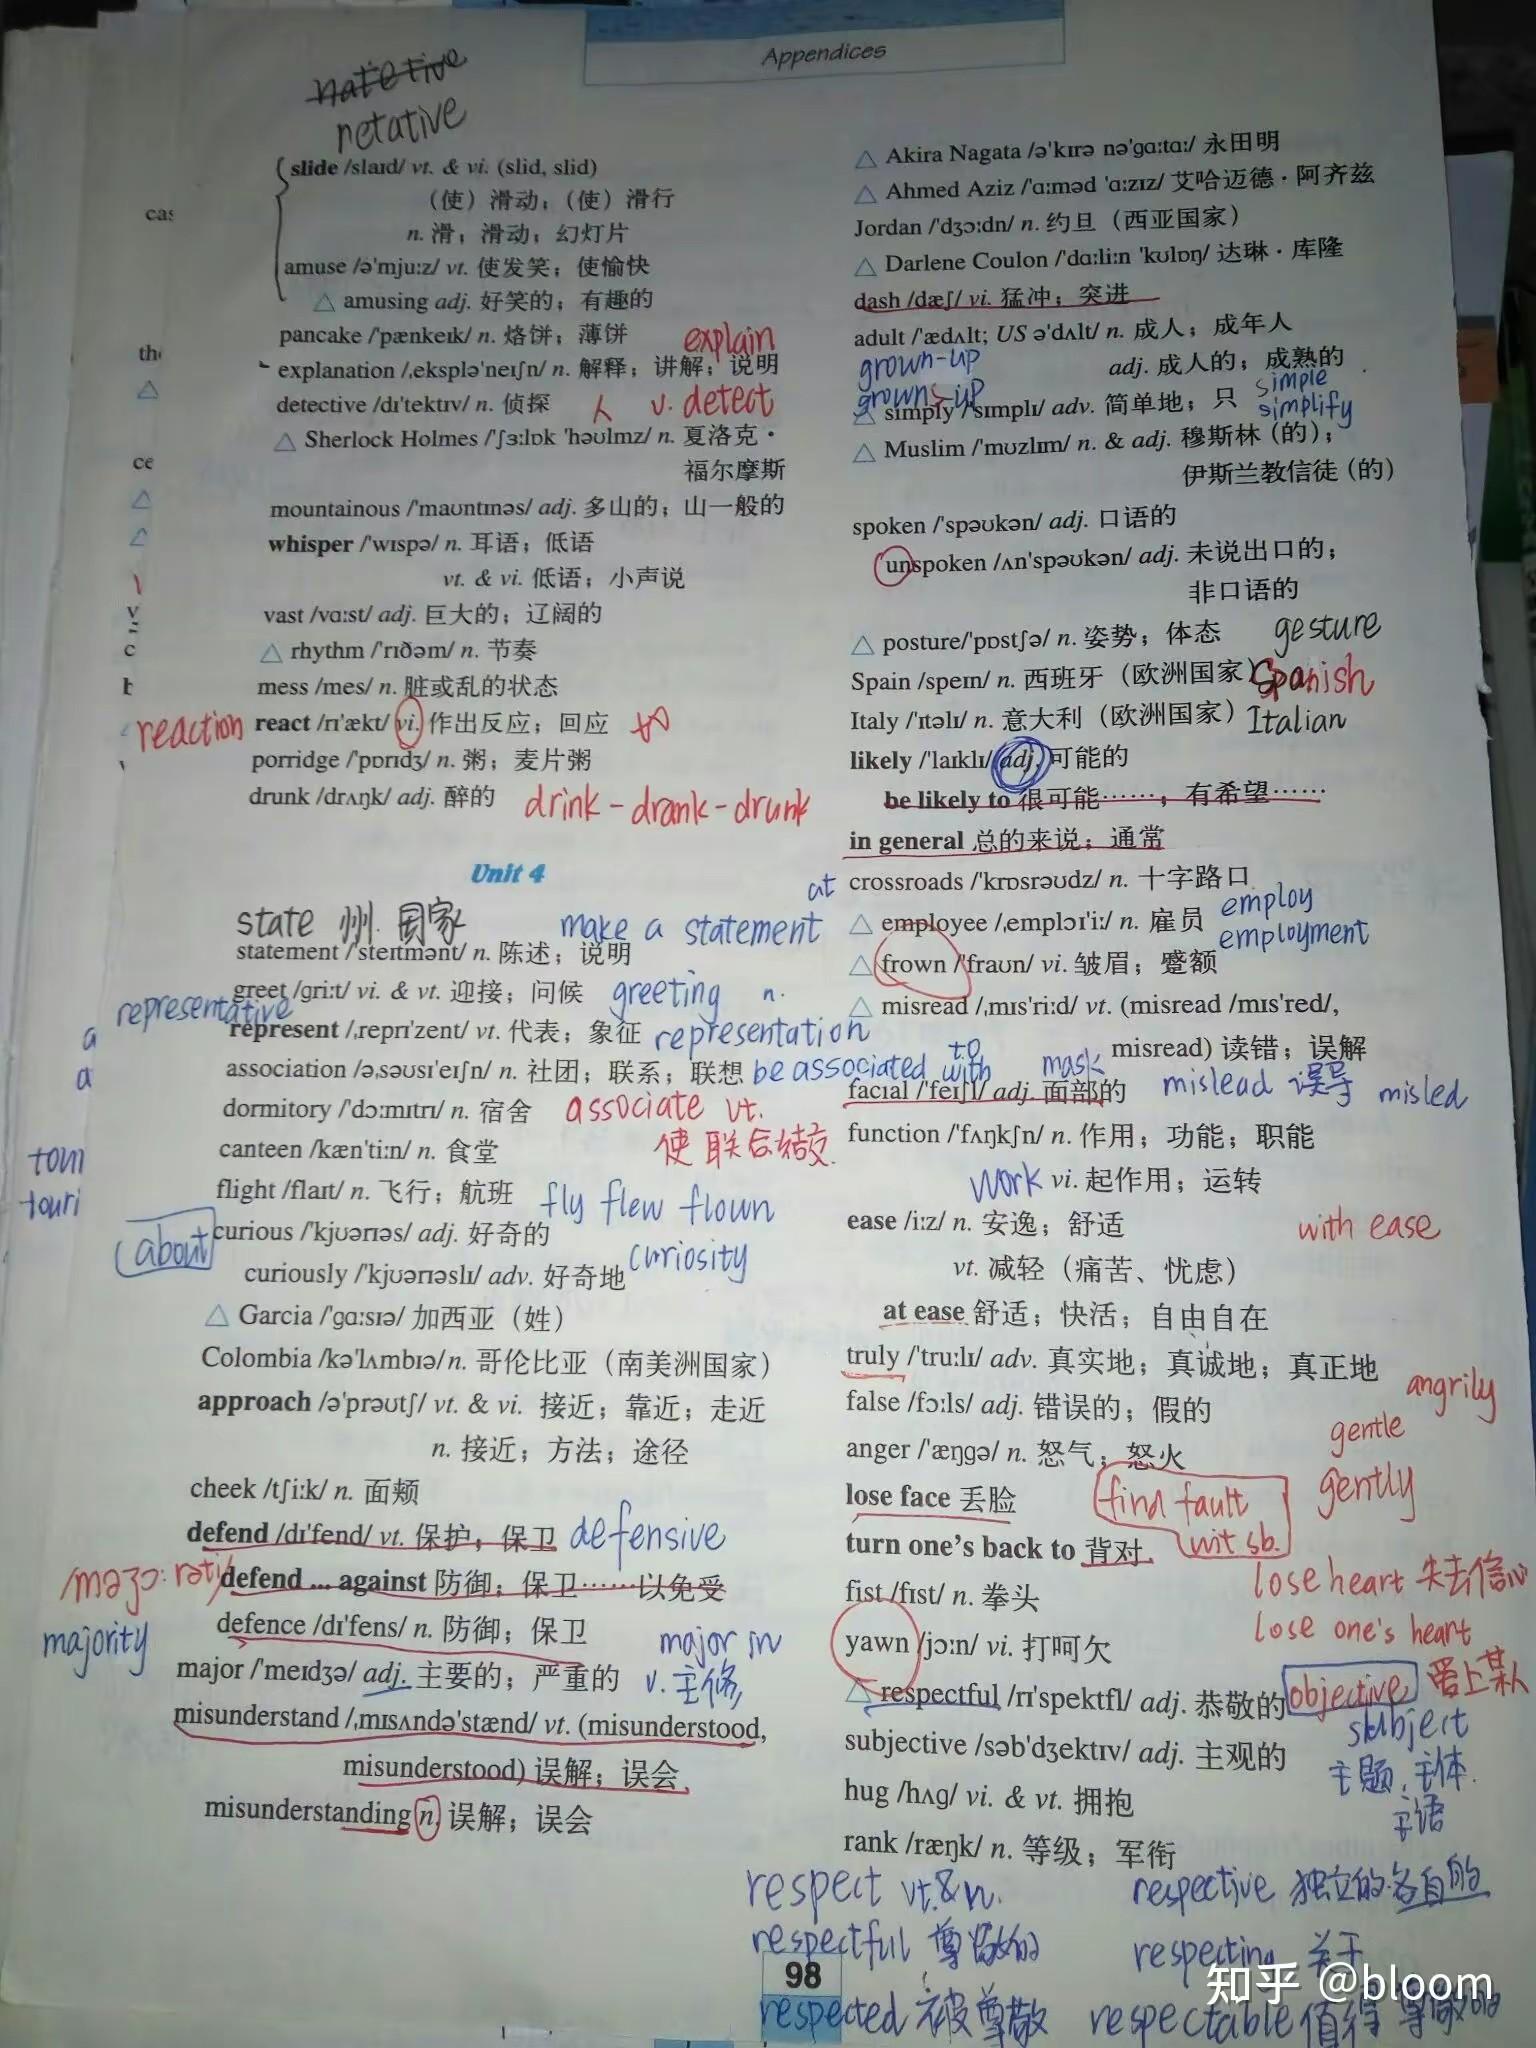 Appendices
retative
slide /slaɪd/ vt. & vi. (slid, slid)
（使）滑动；（使）滑行
n. 滑；滑动；幻灯片
amuse /əˈmjuːz/ vt. 使发笑；使愉快
△ amusing adj. 好笑的；有趣的
pancake /ˈpænkeɪk/ n. 烙饼；薄饼
explain
explanation /ˌekspləˈneɪʃn/ n. 解释；讲解；说明
detective /dɪˈtektɪv/ n. 侦探 人 v. detect
△ Sherlock Holmes /ˈʃɜːlɒk ˈhəʊlmz/ n. 夏洛克·
福尔摩斯
mountainous /ˈmaʊntɪnəs/ adj. 多山的；山一般的
whisper /ˈwɪspə/ n. 耳语；低语
vt. & vi. 低语；小声说
vast /vɑːst/ adj. 巨大的；辽阔的
△ rhythm /ˈrɪðəm/ n. 节奏
mess /mes/ n. 脏或乱的状态
reaction react /rɪˈækt/ vi. 作出反应；回应
porridge /ˈpɒrɪdʒ/ n. 粥；麦片粥
drunk /drʌŋk/ adj. 醉的 drink - drank - drunk
Unit 4
state 州. 国家 make a statement
statement /ˈsteɪtmənt/ n. 陈述；说明
greet /ɡriːt/ vi. & vt. 迎接；问候 greeting n.
representative
represent /ˌreprɪˈzent/ vt. 代表；象征 representation
association /əˌsəʊsɪˈeɪʃn/ n. 社团；联系；联想 be associated to with
dormitory /ˈdɔːmɪtrɪ/ n. 宿舍 associate vt.
canteen /kænˈtiːn/ n. 食堂 使联合结交
flight /flaɪt/ n. 飞行；航班 fly flew flown
about curious /ˈkjʊərɪəs/ adj. 好奇的
curiously /ˈkjʊərɪəslɪ/ adv. 好奇地 curiosity
△ Garcia /ˈɡɑːsɪə/ 加西亚（姓）
Colombia /kəˈlʌmbɪə/ n. 哥伦比亚（南美洲国家）
approach /əˈprəʊtʃ/ vt. & vi. 接近；靠近；走近
n. 接近；方法；途径
cheek /tʃiːk/ n. 面颊
defend /dɪˈfend/ vt. 保护；保卫 defensive
defend ... against 防御；保卫……以免受
defence /dɪˈfens/ n. 防御；保卫
majority major in
major /ˈmeɪdʒə/ adj. 主要的；严重的 v. 主修
misunderstand /ˌmɪsʌndəˈstænd/ vt. (misunderstood,
misunderstood) 误解；误会
misunderstanding n. 误解；误会
△ Akira Nagata /əˈkɪrə nəˈɡɑːtɑː/ 永田明
△ Ahmed Aziz /ˈɑːməd ˈɑːzɪz/ 艾哈迈德·阿齐兹
Jordan /ˈdʒɔːdn/ n. 约旦（西亚国家）
△ Darlene Coulon /ˈdɑːliːn ˈkʊlɒŋ/ 达琳·库隆
dash /dæʃ/ vi. 猛冲；突进
adult /ˈædʌlt; US əˈdʌlt/ n. 成人；成年人
grown-up adj. 成人的；成熟的
growns-up simple
△ simply /ˈsɪmplɪ/ adv. 简单地；只 simplify
△ Muslim /ˈmʊzlɪm/ n. & adj. 穆斯林（的）；
伊斯兰教信徒（的）
spoken /ˈspəʊkən/ adj. 口语的
unspoken /ʌnˈspəʊkən/ adj. 未说出口的；
非口语的
△ posture/ˈpɒstʃə/ n. 姿势；体态 gesture
Spain /speɪn/ n. 西班牙（欧洲国家） Spanish
Italy /ˈɪtəlɪ/ n. 意大利（欧洲国家） Italian
likely /ˈlaɪklɪ/ adj. 可能的
be likely to 很可能……，有希望……
in general 总的来说；通常
at crossroads /ˈkrɒsrəʊdz/ n. 十字路口
△ employee /ˌemplɔɪˈiː/ n. 雇员 employ
employment
△ frown /ˈfraʊn/ vi. 皱眉；蹙额
△ misread /ˌmɪsˈriːd/ vt. (misread /mɪsˈred/,
misread) 读错；误解
mask
facial /ˈfeɪʃl/ adj. 面部的 mislead 误导 misled
function /ˈfʌŋkʃn/ n. 作用；功能；职能
work vi. 起作用；运转
ease /iːz/ n. 安逸；舒适 with ease
vt. 减轻（痛苦、忧虑）
at ease 舒适；快活；自由自在
truly /ˈtruːlɪ/ adv. 真实地；真诚地；真正地
angrily
false /fɔːls/ adj. 错误的；假的
gentle
anger /ˈæŋɡə/ n. 怒气；怒火
gently
lose face 丢脸 find fault
wit sb.
turn one's back to 背对
lose heart 失去信心
fist /fɪst/ n. 拳头
lose one's heart
yawn /jɔːn/ vi. 打呵欠
爱上某人
△ respectful /rɪˈspektfl/ adj. 恭敬的 objective
subject
subjective /səbˈdʒektɪv/ adj. 主观的
主题. 主体.
主语
hug /hʌɡ/ vi. & vt. 拥抱
rank /ræŋk/ n. 等级；军衔
respect vt.& n. respective 独立的.各自的
respectful 尊敬的 respecting 关于
98
respected 被尊敬 respectable 值得尊敬的
知乎 @bloom